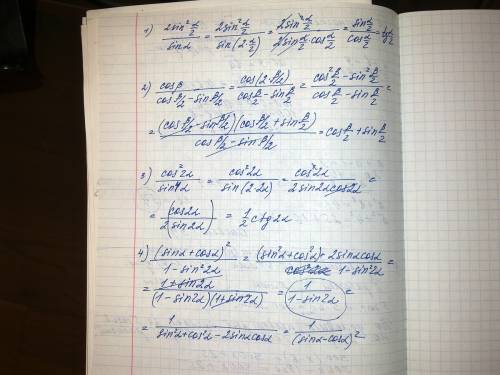 1) 2sin²α/2 / sinα = 2sin²α/2 / sin(2·α/2) = 2sin²α/2 / 2sinα/2·cosα/2 = sinα/2 / cosα/2 = tgα/2
2) cosβ / cosβ/2 - sinβ/2 = cos(2·β/2) / cosβ/2 - sinβ/2 = cos²β/2 - sin²β/2 / cosβ/2 - sinβ/2 =
= (cosβ/2 - sinβ/2)(cosβ/2 + sinβ/2) / cosβ/2 - sinβ/2 = cosβ/2 + sinβ/2
3) cos²2α / sin4α = cos²2α / sin(2·2α) = cos²2α / 2sin2αcos2α =
= (cos2α / 2sin2α) = 1/2 ctg2α
4) (sinα + cosα)² / 1 - sin²2α = (sin²α + cos²α) + 2sinαcosα / 1 - sin²2α =
= 1 + sin2α / (1 - sin2α)(1 + sin2α) = 1 / 1 - sin2α =
= 1 / sin²α + cos²α - 2sinαcosα = 1 / (sinα - cosα)²